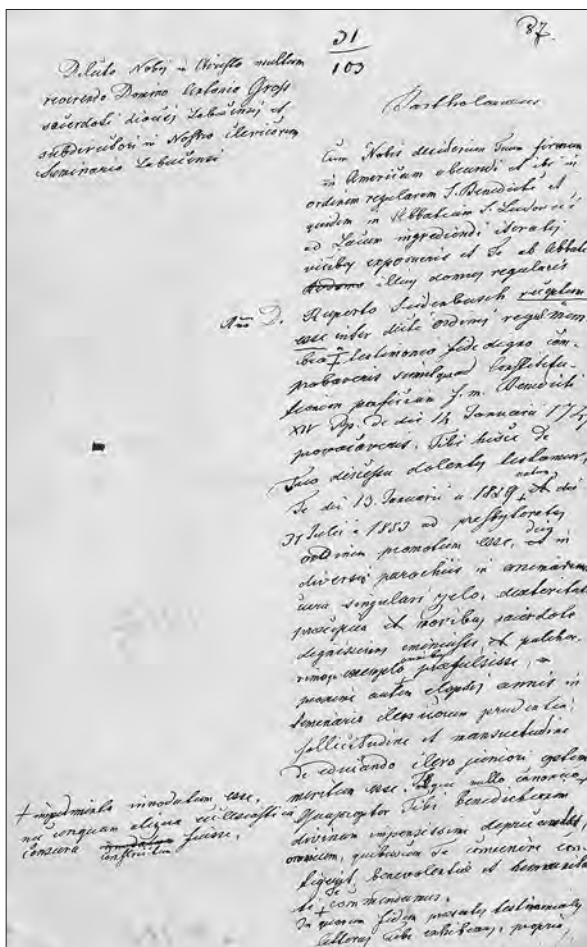 31
103
87.
Dilecto Nobis in Christo multum
reverendo Domino Antonio Gross
sacerdoti dioecis Labacensi et
subdirectori in Nostro clericorum
Seminario Labacensi
Bartholomaeus
Cum Nobis desiderium Tuum firmum
in Americam abeundi et ibi in
ordinem regularem S. Benedicti et
quidem in Abbatiam S. Ludovici
ad Lacum ingrediendi iteratis
vicibus exposueris et Te ab Abbate
illius domus regularis
D. Ruperto Seidenbusch receptum
esse inter dicti ordinis
testimonio fide digno com-
probaveris simulquad Constitu-
tionem f. m. Benedicti
XIV Pp. de die 14 Januarii 1747
provocaveris, Tibi hisce de
Tuo discessu dolentes testamur,
Te die 13. Januarii a 1829 natum et die
31 Julii a 1853 ad presbyteratus
ordinem promotum esse, et in
diversis parochiis in animarum
cura singulari zelo, dexteritate
praecipua et moribus sacerdote
dignissimis eminuisse, et pulcher-
rimo exemplo praefulsisse,
autem elapsis annis in
Seminario clericorum prudentia,
sollicitudine et mansuetudine
de educando clero juniori optime
meritum esse, nullo canonico
+ impedimento innodatum esse,
nec unquam aliqua ecclesiastica
censura constrictum fuisse.
Quapropter Tibi benedictionem
divinam impensissime deprecamur
omnium, quibuscum Te convenire con-
tigerit, benevolentiae et humanita-
ti Te commendamus.
In quorum fidem praesentes testimoniales
litteras Tibi exhibemus, propria